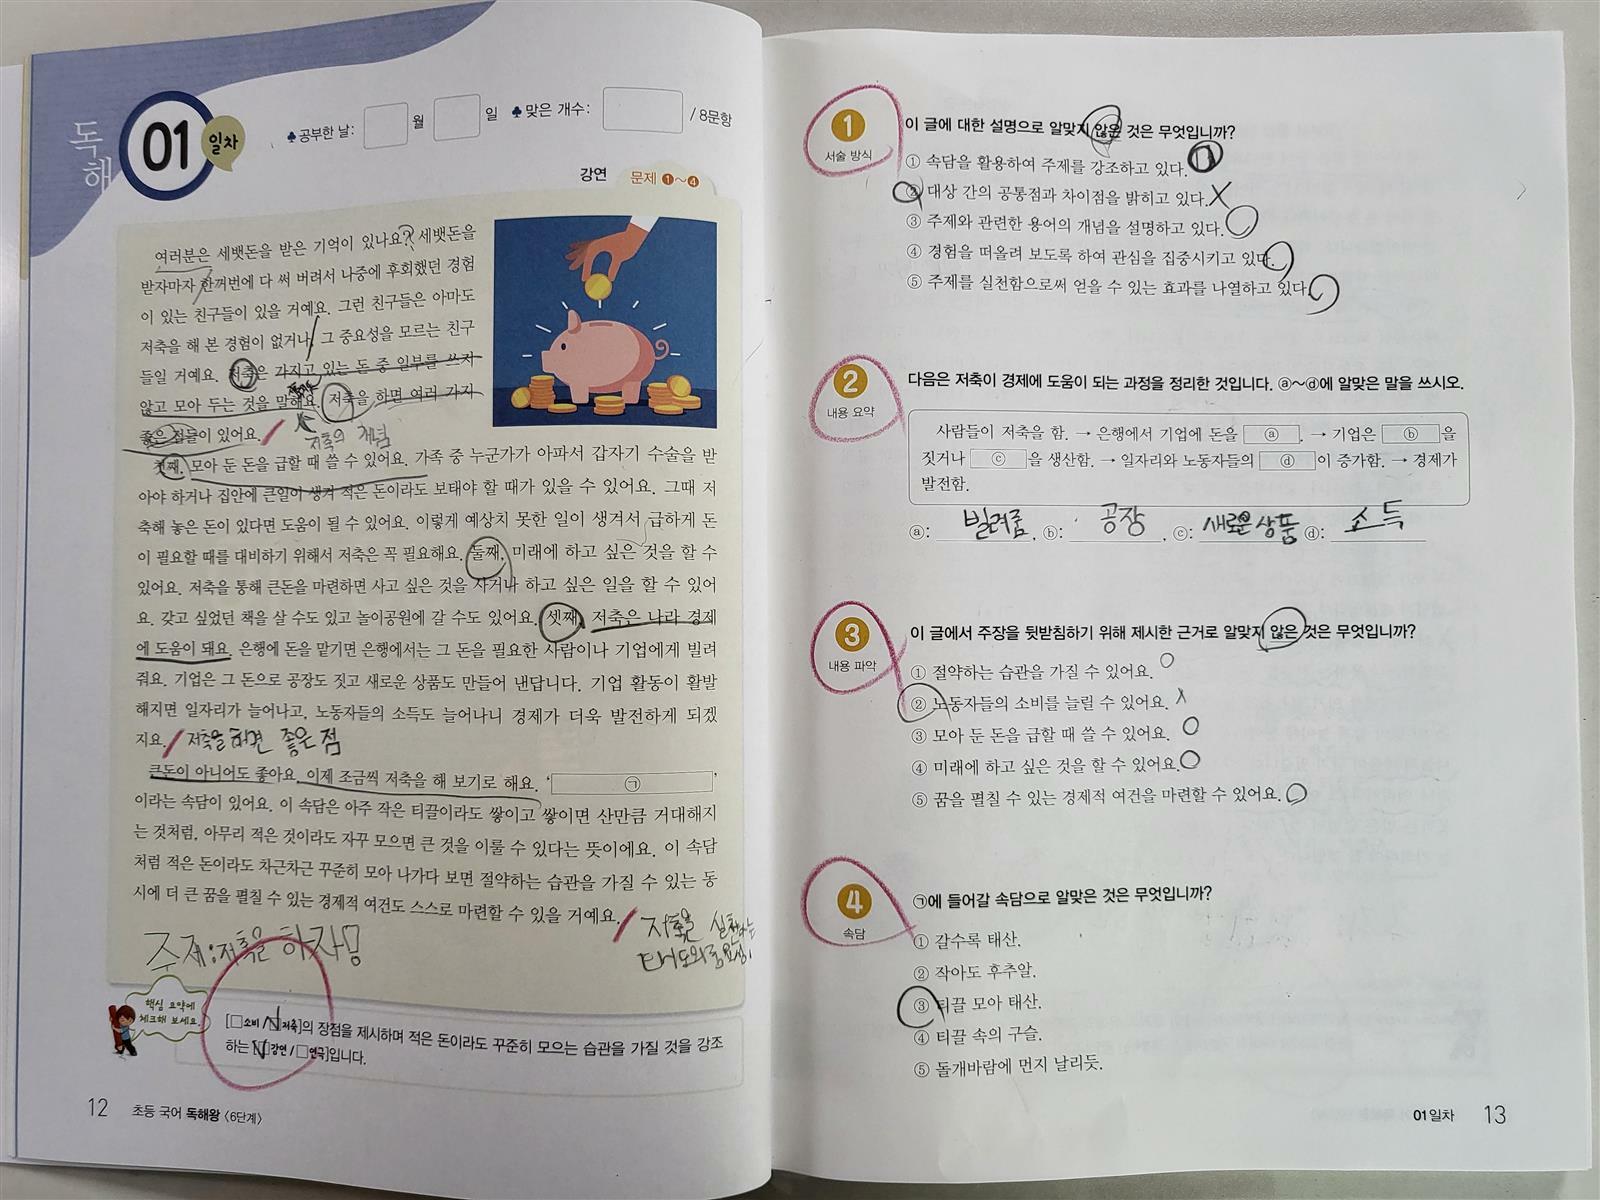 독해
01 일차
♣공부한 날: 월 일 ♣맞은 개수: / 8문항
강연 문제 ❶~❹
여러분은 세뱃돈을 받은 기억이 있나요? 세뱃돈을
받자마자 한꺼번에 다 써 버려서 나중에 후회했던 경험
이 있는 친구들이 있을 거예요. 그런 친구들은 아마도
저축을 해 본 경험이 없거나, 그 중요성을 모르는 친구
들일 거예요. 저축은 가지고 있는 돈 중 일부를 쓰지
않고 모아 두는 것을 말해요. 저축을 하면 여러 가지
좋은 점들이 있어요.
저축의 개념
첫째, 모아 둔 돈을 급할 때 쓸 수 있어요. 가족 중 누군가가 아파서 갑자기 수술을 받
아야 하거나 집안에 큰일이 생겨 적은 돈이라도 보태야 할 때가 있을 수 있어요. 그때 저
축해 놓은 돈이 있다면 도움이 될 수 있어요. 이렇게 예상치 못한 일이 생겨서 급하게 돈
이 필요할 때를 대비하기 위해서 저축은 꼭 필요해요. 둘째, 미래에 하고 싶은 것을 할 수
있어요. 저축을 통해 큰돈을 마련하면 사고 싶은 것을 사거나 하고 싶은 일을 할 수 있어
요. 갖고 싶었던 책을 살 수도 있고 놀이공원에 갈 수도 있어요. 셋째, 저축은 나라 경제
에 도움이 돼요. 은행에 돈을 맡기면 은행에서는 그 돈을 필요한 사람이나 기업에게 빌려
줘요. 기업은 그 돈으로 공장도 짓고 새로운 상품도 만들어 낸답니다. 기업 활동이 활발
해지면 일자리가 늘어나고, 노동자들의 소득도 늘어나니 경제가 더욱 발전하게 되겠
지요. 저축을 하면 좋은 점
큰돈이 아니어도 좋아요. 이제 조금씩 저축을 해 보기로 해요. ‘ ㉠ ’
이라는 속담이 있어요. 이 속담은 아주 작은 티끌이라도 쌓이고 쌓이면 산만큼 거대해지
는 것처럼, 아무리 적은 것이라도 자꾸 모으면 큰 것을 이룰 수 있다는 뜻이에요. 이 속담
처럼 적은 돈이라도 차근차근 꾸준히 모아 나가다 보면 절약하는 습관을 가질 수 있는 동
시에 더 큰 꿈을 펼칠 수 있는 경제적 여건도 스스로 마련할 수 있을 거예요.
저축을 실천하는
태도의 중요성
주제:저축을 하자!
핵심 요약에
체크해 보세요.
[□소비 / □저축]의 장점을 제시하며 적은 돈이라도 꾸준히 모으는 습관을 가질 것을 강조
하는 [□강연 / □연극]입니다.
12 초등 국어 독해왕 〈6단계〉
1 이 글에 대한 설명으로 알맞지 않은 것은 무엇입니까?
서술 방식
① 속담을 활용하여 주제를 강조하고 있다.
② 대상 간의 공통점과 차이점을 밝히고 있다. X
③ 주제와 관련한 용어의 개념을 설명하고 있다.
④ 경험을 떠올려 보도록 하여 관심을 집중시키고 있다.
⑤ 주제를 실천함으로써 얻을 수 있는 효과를 나열하고 있다.
2 다음은 저축이 경제에 도움이 되는 과정을 정리한 것입니다. ⓐ~ⓓ에 알맞은 말을 쓰시오.
내용 요약
사람들이 저축을 함. → 은행에서 기업에 돈을 ⓐ . → 기업은 ⓑ 을
짓거나 ⓒ 을 생산함. → 일자리와 노동자들의 ⓓ 이 증가함. → 경제가
발전함.
ⓐ: 빌려줌, ⓑ: 공장, ⓒ: 새로운 상품 ⓓ: 소득
3 이 글에서 주장을 뒷받침하기 위해 제시한 근거로 알맞지 않은 것은 무엇입니까?
내용 파악
① 절약하는 습관을 가질 수 있어요.
② 노동자들의 소비를 늘릴 수 있어요. x
③ 모아 둔 돈을 급할 때 쓸 수 있어요.
④ 미래에 하고 싶은 것을 할 수 있어요.
⑤ 꿈을 펼칠 수 있는 경제적 여건을 마련할 수 있어요.
4 ㉠에 들어갈 속담으로 알맞은 것은 무엇입니까?
속담
① 갈수록 태산.
② 작아도 후추알.
③ 티끌 모아 태산.
④ 티끌 속의 구슬.
⑤ 돌개바람에 먼지 날리듯.
01일차 13